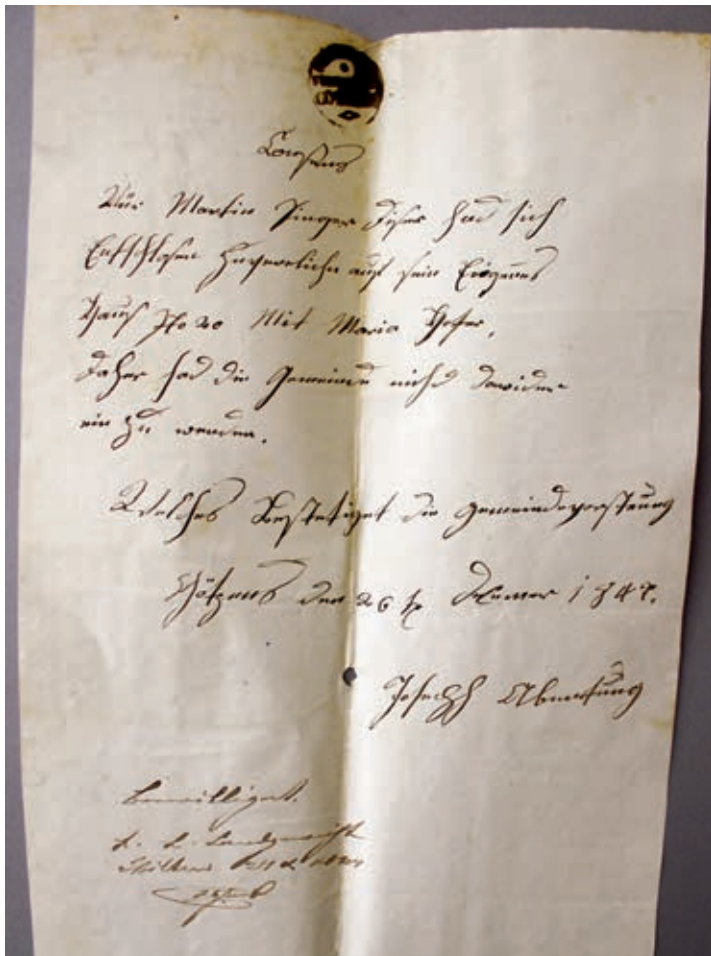 Consens
Für Martin Singer dieser had sich
Entschlosen zuverelichn auf sein Eigenes
Hauß No 20 Mit Maria Hofer,
daher had die Gemeinde nichd dawider
ein zu wenden.
Welches Bestetiget die Gemeindevorsteung
Götzens den 26 1847.
Joseph Abenthung
bewilliget.
k. k. Landgericht